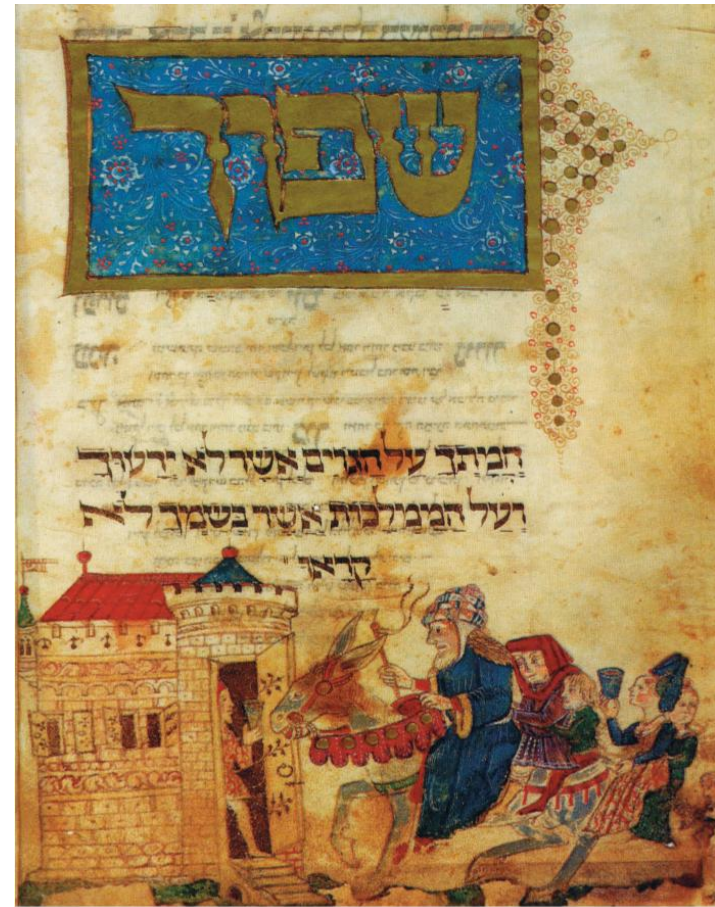 שפוך
חמתך על הגוים אשר לא ידעוך
ועל הממלכות אשר בשמך לא
קראו